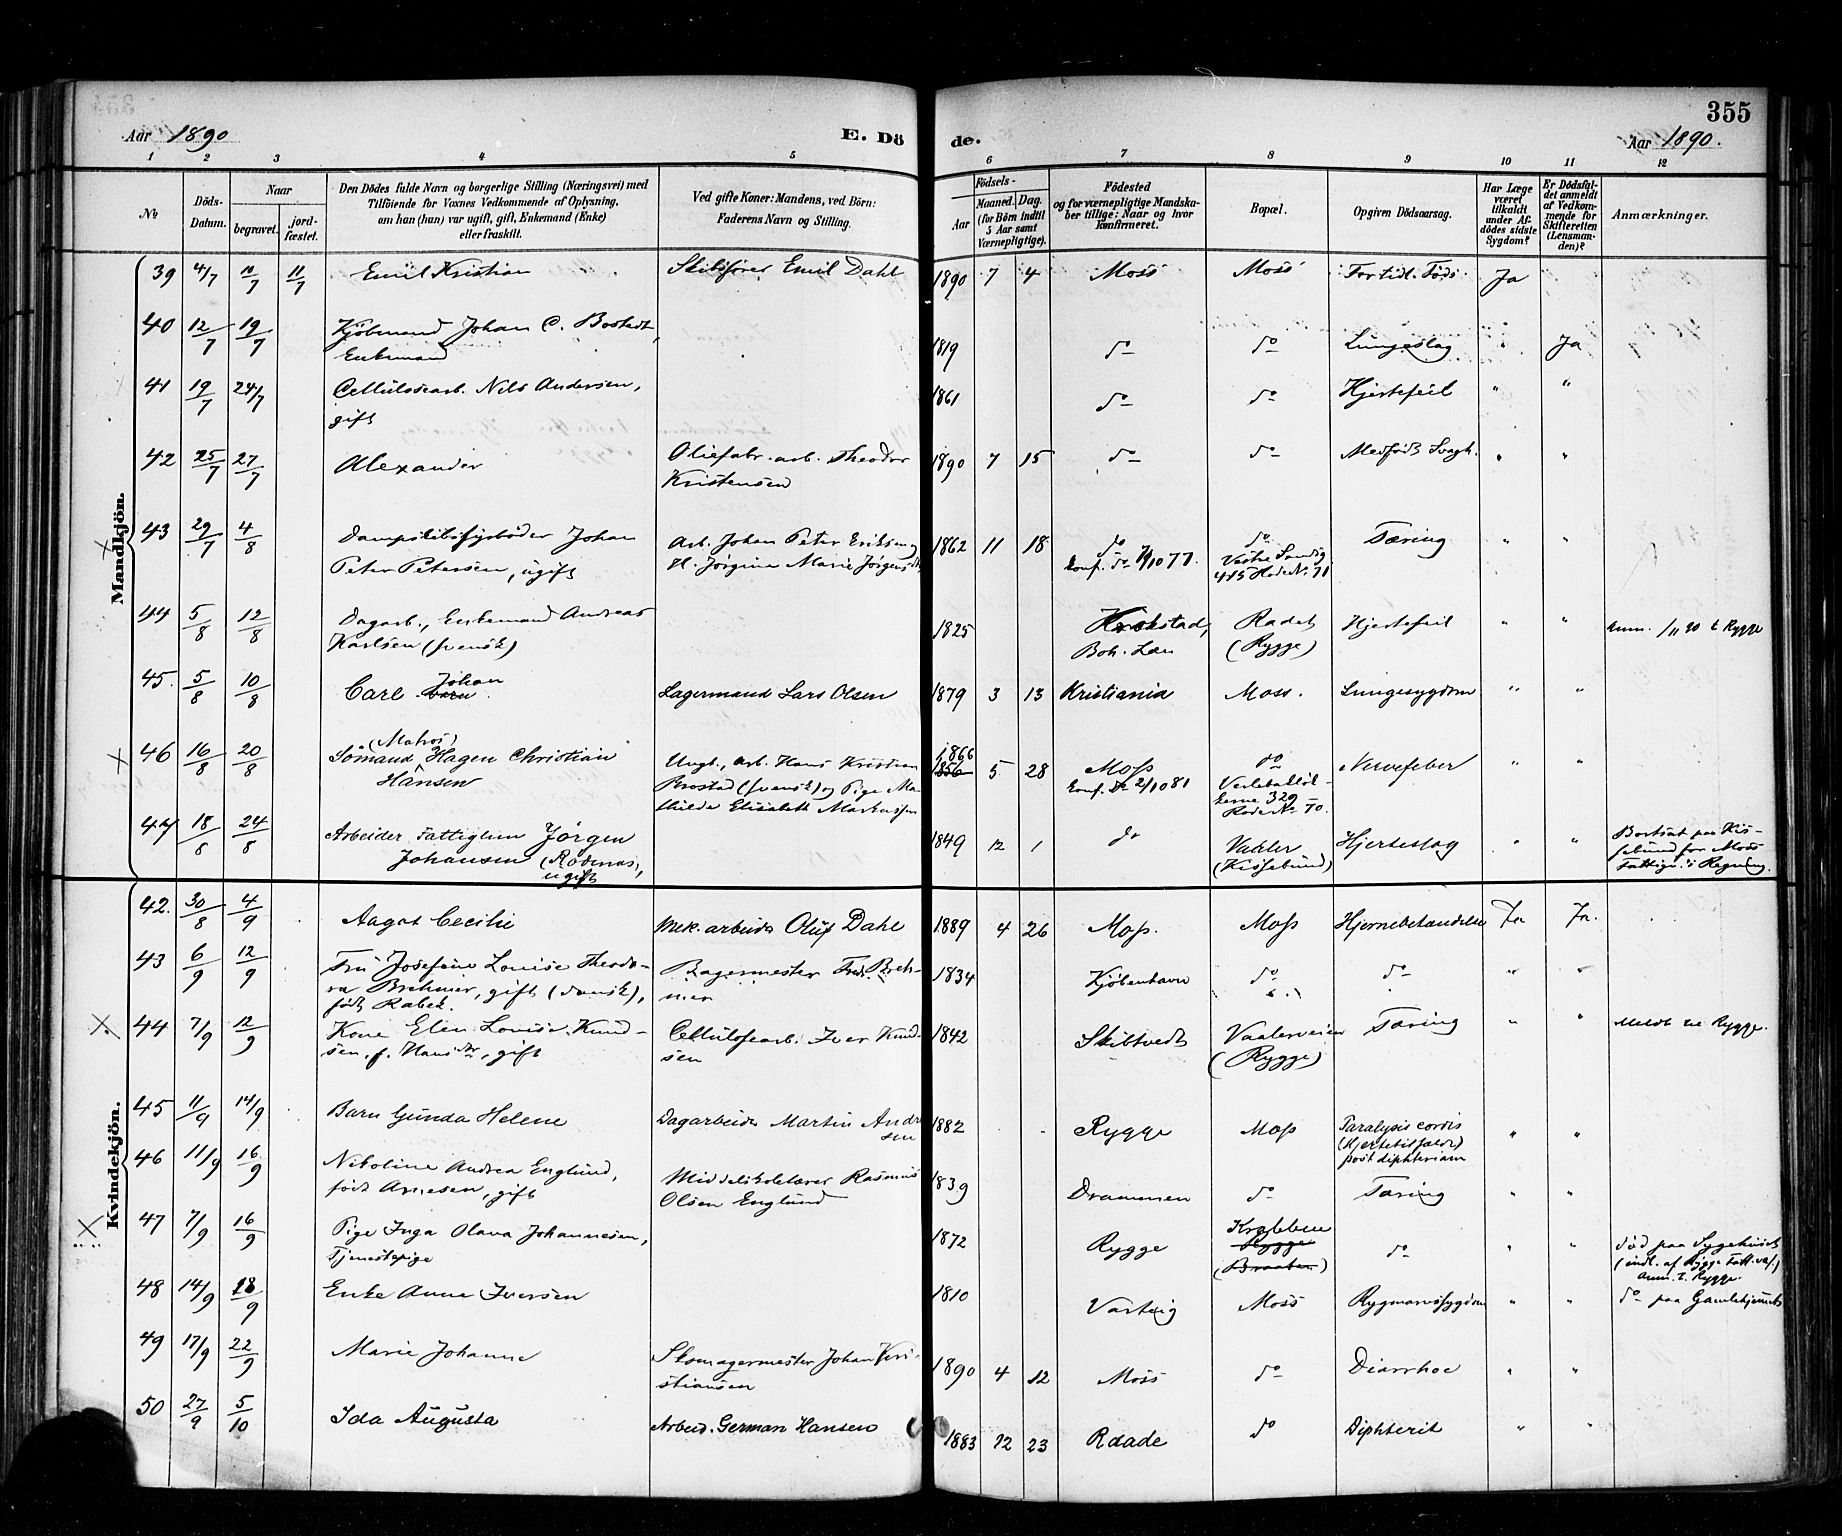 355
Aar 1890
E. Dö
de.
Aar 1890.
1 2 3 4 5 6 7 8 9 10 11 12
No
Döds-Datum.
Naar
begravet.
jord-fæstet.
Den Dödes fulde Navn og borgerlige Stilling (Næringsvei) med
Tilföiende for Voxnes Vedkommende af Oplysning,
om han (hun) var ugift, gift, Enkemand (Enke)
eller fraskilt.
Ved gifte Koner: Mandens, ved Börn:
Faderens Navn og Stilling.
Födsels-
Aar
Maaned. Dag.
(for Börn indtil
5 Aar samt
Værnepligtige).
Födested
og for værnepligtige Mandska-
ber tillige: Naar og hvor
konfirmeret.
Bopæl.
Opgiven Dödsaarsag.
Har Læge
været
tilkaldt
under Af-
dödes sidste
Sygdom?
Er Dödsfal-
det anmeldt
af Vedkom-
mende for
Skifteretten
(Lensman-
den)?
Anmærkninger.
Mandkjön.
39 4/7 11/7 Emil Kristian Skibsfører Emil Dahl 1890 7 4 Moss Moss For tidl. Føds. Ja
40 12/7 19/7 Kjöbmand Johan C. Bostedt, 1819 do do Lungeslag " Ja
Enkemand
41 19/7 24/7 Cellulosearb. Nils Andersen, 1861 do do Hjertefeil " "
gift
42 25/7 27/7 Alexander Oliefabr. arb. Theodor 1890 7 15 do do Medfödt Svagh. " "
Kristensen
43 29/7 4/8 Dampskibsfyrböder Johan Arb. Johan Peter Eriksen og 1862 11 18 do do Tæring " "
Peter Petersen, ugift H. Jörgine Marie Konf. do 7/10 77. Vestre Sandg.
415 Rode No 71
44 5/8 12/8 Dagarb., Enkemand Andreas 1825 Krokstad, Radet Hjertefeil " " Anm. t. Rygge
Karlsen (svensk) Boh. Län (Rygge)
45. 5/8 10/8 Carl Johan Lagermand Lars Olsen 1879 3 13 Kristiania Moss. Lungesygdom " "
46 16/8 20/8 (Matros)
Sömand Hagen Christian Ungk., Arb. Hans Kristian 1866 5 28 Moss do Nervefeber " "
Hansen (svensk) og Pige Ma- 1856 Konf. do 2/10 81
thilde Elisabeth 329
Rode No 70.
47 18/8 24/8 Arbeider, Fattiglem Jörgen 1849 12 1 do Vaaler Hjerteslag " " Bortsat paa Kis-
Johansen (Rödsnæs), (Kissebund) sebund for Moss
ugift Fattigv.'s Regning.
Kvindekjön.
42. 30/8 4/9 Aagot Cecilie Mek. arbeider Oluf Dahl 1889 4 26 Moss. Moss Hjernebetændelse Ja Ja.
43 6/9 12/9 Fru Josefine Louise Theodo- Bagermester Fred. Breh- 1834 Kjöbenhavn do do " "
ra Brehmer, gift (dansk), mer
født Rabek.
44 7/9 12/9 Kone Elen Lovise Knud- Cellulosearb. Iver Knud- 1842 Skibtvedt Vaalerveien Tæring " " Meldt til Rygge.
sen, f. Hansdtr, gift sen (Rygge)
45 11/9 14/9 Barn Gunda Helene Dagarbeider Martin Andr- 1882 Rygge Moss Paralysis cordis " "
sen (Hjertetilfælde)
post diphteriam
46 11/9 16/9 Nikoline Andrea Englund, Middelskolelærer Rasmus 1839 Drammen do Tæring " "
födt Arnesen, gift Olsen Englund
47 7/9 16/9 Pige Inga Olava Johannesen, 1872 Rygge Krabben do " " Död paa Sygehuset
Tjenestepige Rygge (indl. af Rygge Fatt.væs.)
(Braaten) Anm. t. Rygge.
48 14/9 18/9 Enke Anna Iversen 1810 Varteig Moss Rygmarvssygdom " " do paa Gamlehjemmet
49 17/9 22/9 Marie Johanne Skomagermester Johan Kri- 1890 4 12 Moss do Diarrhoe " "
stiansen
50 27/9 5/10 Ida Augusta Arbeid. German Hansen 1883 12 23 Raade do Diphterit " "